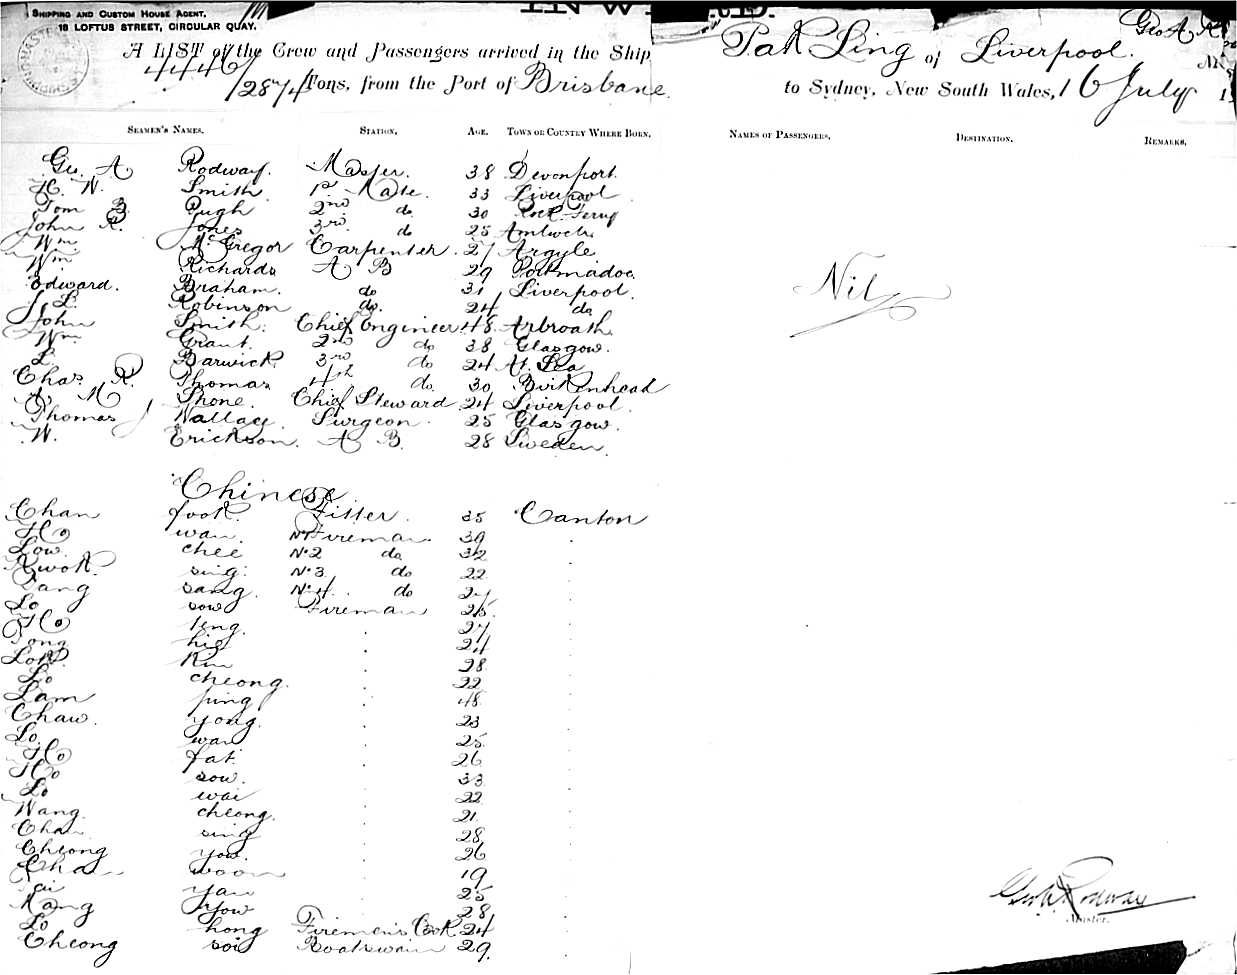 SHIPPING AND CUSTOM HOUSE AGENT,
18 LOFTUS STREET, CIRCULAR QUAY.
A LIST of the Crew and Passengers arrived in the Ship Pak Ling of Liverpool. Geo A
4446/2874 Tons, from the Port of Brisbane to Sydney, New South Wales, 16 July
SEAMEN'S NAMES. STATION. AGE. TOWN OR COUNTRY WHERE BORN. NAMES OF PASSENGERS. DESTINATION. REMARKS.
Geo. A Rodway. Master. 38 Devonport.
H. W. Smith. 1st Mate. 33 Liverpool
Tom B. Pugh 2nd do 30 Rock Ferry
John R. Jones 3rd do 25 Amlwch
Wm. McGregor Carpenter. 27 Argyle
Wm Richards A B 29 Portmadoc.
Edward. Braham. do 31 Liverpool.
J. L. Robinson do. 24 do
John Smith. Chief Engineer. 48. Arbroath.
Wm Grant. 2nd do 38 Glasgow.
L. Barwick 3rd do 24 At Sea
Chas. R. Thomas 4th do. 30 Birkenhead
M Shone. Chief Steward. 24 Liverpool.
Thomas J Wallace Surgeon. 25 Glasgow.
W. Erickson. A B. 28 Sweden.
Nil
Chinese
Chan fook. Fitter. 35 Canton
Ho wan. No 1 Fireman. 39
Low. chee No 2 do 32
Kwok. sing. No 3 do 22
sang. No 4. do 27
Lo sow Fireman 25
Ho 27
Tong 24
Lok 28
Lo cheong. 22
Lam ping 48
Chaw. yong. 23
Lo. wan 25
Ho fat. 26
Ho sow. 33
Lo wai 22
Wang cheong. 21
Chan sing 28
Cheong yow. 26
Chan woon 19
Tai yan 25
28
Lo hong Firemen's Cook 24
Cheong soi Boatswain 29.
Geo A Rodway
Master.